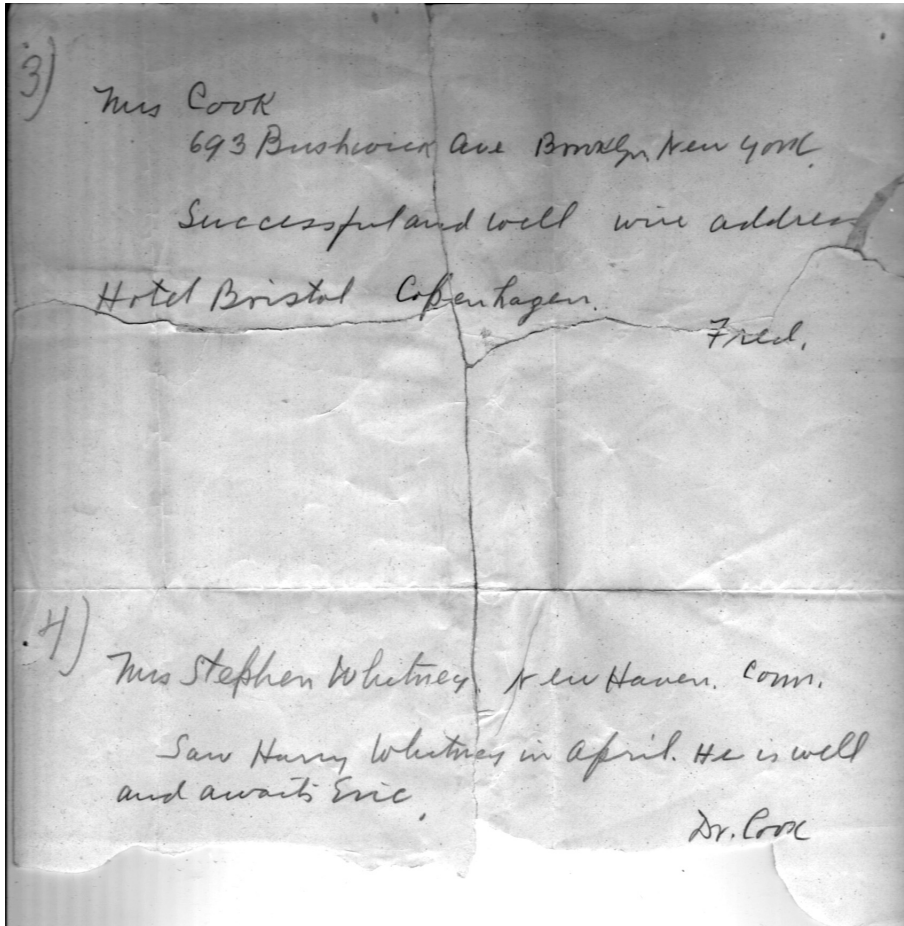 3)
Mrs Cook
693 Bushwick Ave Brooklyn New York
Successful and well wire address
Hotel Bristol Copenhagen.
Fred.
4)
Mrs Stephen Whitney. New Haven. Conn.
Saw Harry Whitney in April. He is well
and awaits Eric.
Dr. Cook